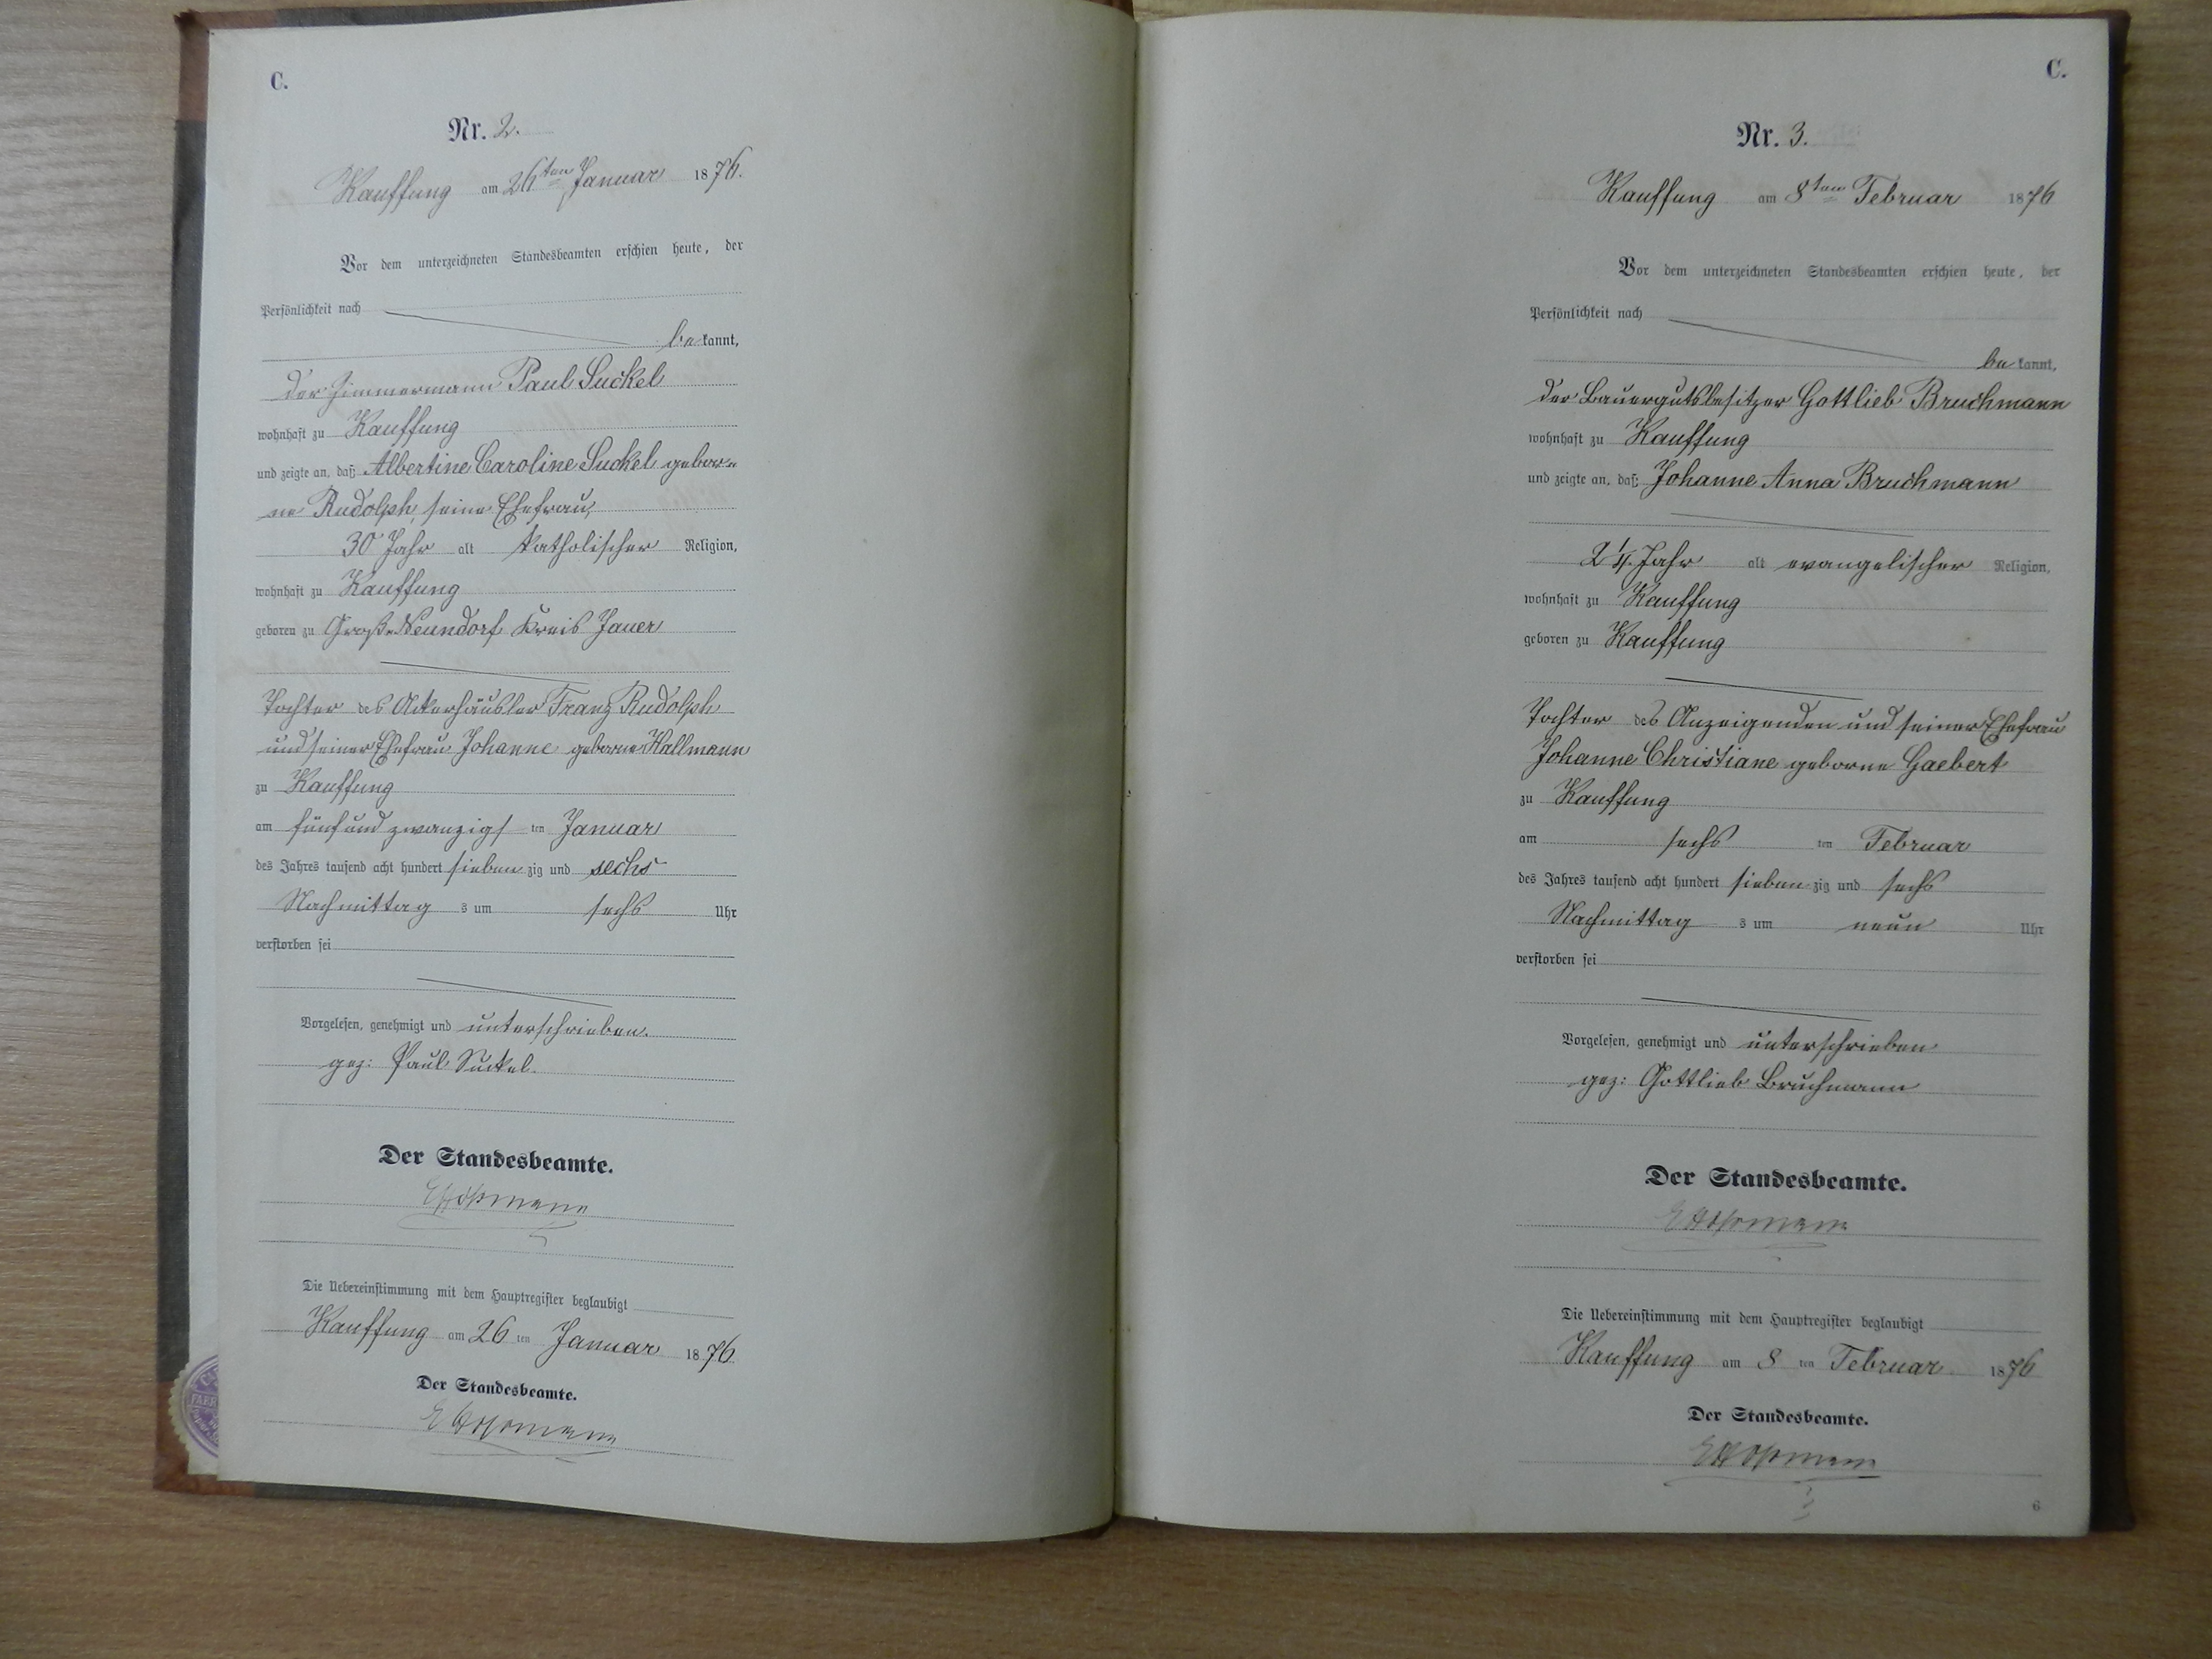 C.
Nr. 2.
Kauffung am 26ten Januar 1876.
Vor dem unterzeichneten Standesbeamten erschien heute, der
Persönlichkeit nach
be kannt,
der Zimmermann Paul Suckel
wohnhaft zu Kauffung
und zeigte an, daß Albertine Caroline Suckel gebor=
ne Rudolph, seine Ehefrau,
30 Jahr alt katholischer Religion,
wohnhaft zu Kauffung
geboren zu Groß-Neundorf Kreis Jauer
Tochter des Ackerhäusler Franz Rudolph
und seiner Ehefrau Johanne geborne Hallmann
zu Kauffung
am fünf und zwanzigs ten Januar
des Jahres tausend acht hundert sieben zig und sechs
Nachmittag s um sechs Uhr
verstorben sei
Vorgelesen, genehmigt und unterschrieben.
gez: Paul Suckel.
Der Standesbeamte.
Die Uebereinstimmung mit dem Hauptregister beglaubigt
Kauffung am 26 ten Januar 1876.
Der Standesbeamte.
C.
Nr. 3.
Kauffung am 8ten Februar 1876
Vor dem unterzeichneten Standesbeamten erschien heute, der
Persönlichkeit nach
be kannt,
der Bauergutsbesitzer Gottlieb Bruchmann
wohnhaft zu Kauffung
und zeigte an, daß Johanne Anna Bruchmann
2 1/4 Jahr alt evangelischer Religion,
wohnhaft zu Kauffung
geboren zu Kauffung
Tochter des Anzeigenden und seiner Ehefrau
Johanne Christiane geborne Gaebert
zu Kauffung
am sechs ten Februar
des Jahres tausend acht hundert sieben zig und sechs
Nachmittag s um neun Uhr
verstorben sei
Vorgelesen, genehmigt und unterschrieben
gez: Gottlieb Bruchmann
Der Standesbeamte.
Die Uebereinstimmung mit dem Hauptregister beglaubigt
Kauffung am 8 ten Februar 1876
Der Standesbeamte.
6